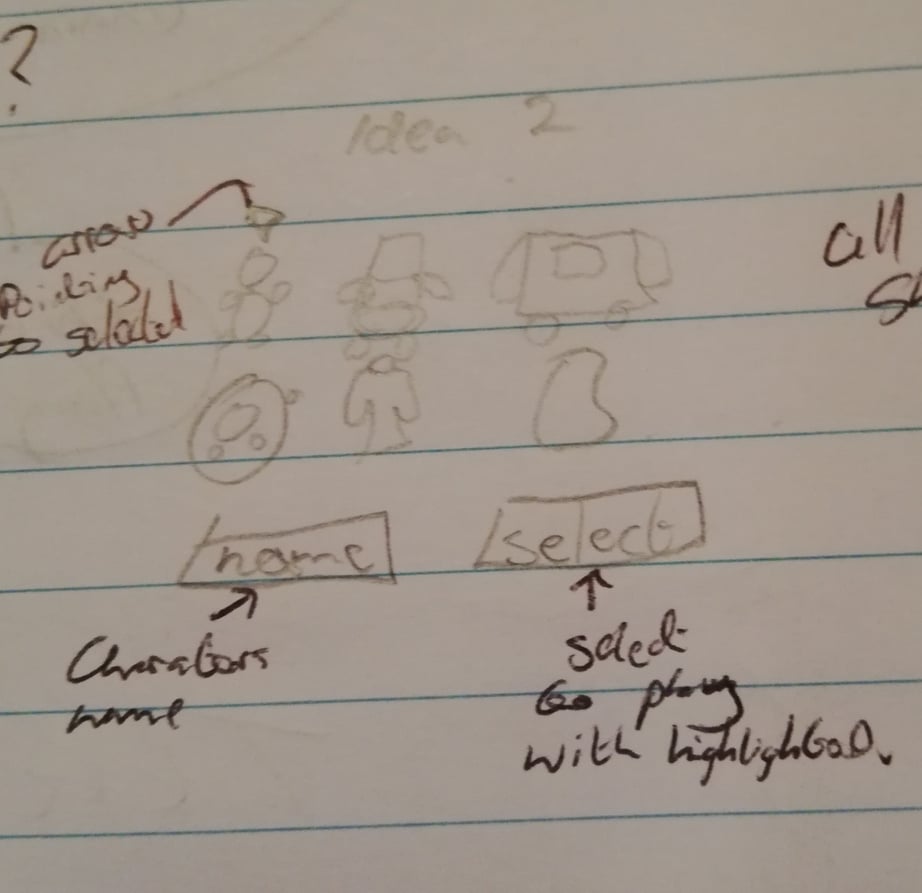 ?
Idea 2
arrow
Pointing
to selected
all
name
select
Charators
name
select
to play
with highlighted.